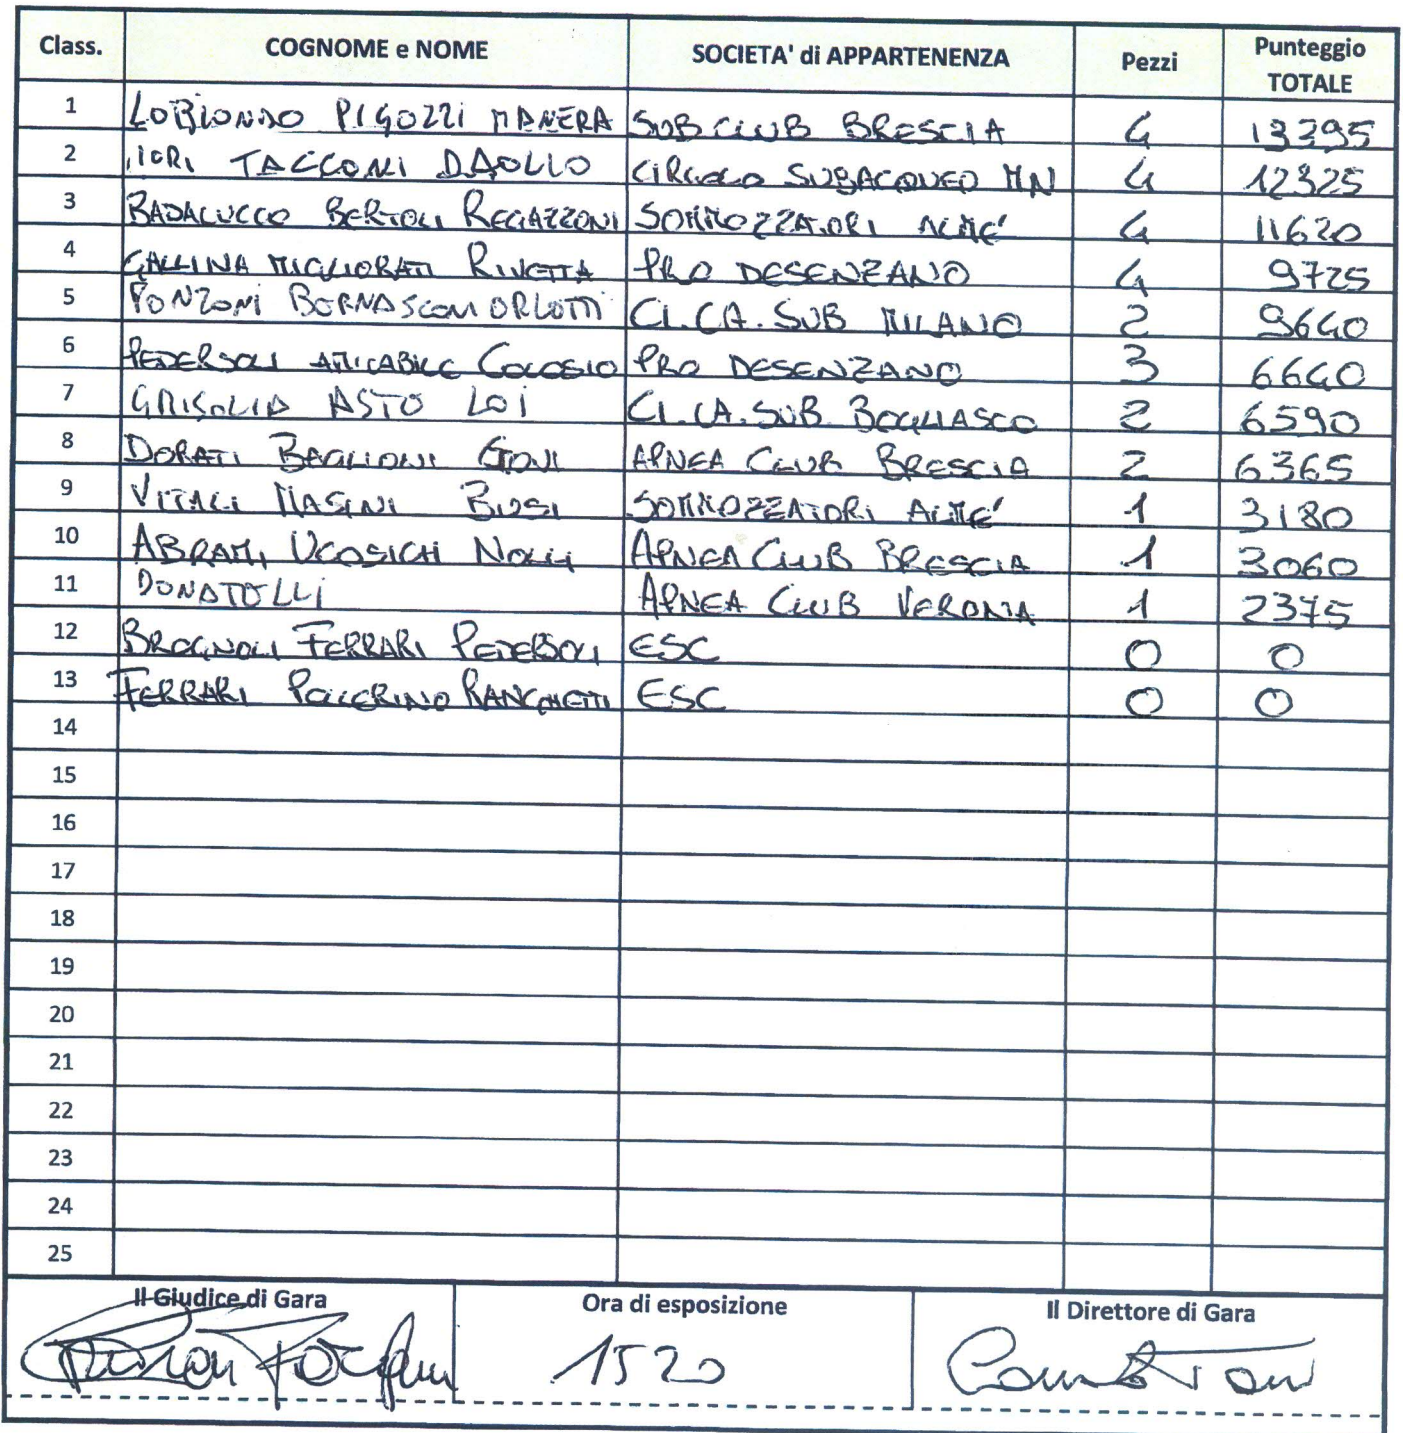 Class. COGNOME e NOME SOCIETA' di APPARTENENZA Pezzi Punteggio TOTALE
1 LOBIONDO PIGOZZI MANERA SUB CLUB BRESCIA 4 13295
2 IORI TACCONI DAOLLO CIRCOLO SUBACQUEO MN 4 12325
3 BADALUCCO BERTOLI REGAZZONI SOMMOZZATORI ALME' 4 11620
4 GALLINA MIGLIORATI RIVETTA PRO DESENZANO 4 9725
5 PONZONI BERNASCONI ORLOTTI CI.CA. SUB MILANO 2 9640
6 PEDERSOLI AMICABILE COCOSIO PRO DESENZANO 3 6640
7 GRISOLIA ASTO LOI CI.CA. SUB BOGLIASCO 2 6590
8 DORATI BAGLIONI GONI APNEA CLUB BRESCIA 2 6365
9 VITALI MASINI BUSI SOMMOZZATORI ALME' 1 3180
10 ABRAMI UCOSICH NOLLI APNEA CLUB BRESCIA 1 3060
11 DONATOLLI APNEA CLUB VERONA 1 2375
12 BROGNOLI FERRARI PEDERSOLI ESC 0 0
13 FERRARI PELLERINO RANCHETTI ESC 0 0
14
15
16
17
18
19
20
21
22
23
24
25
Il Giudice di Gara Ora di esposizione Il Direttore di Gara
1520